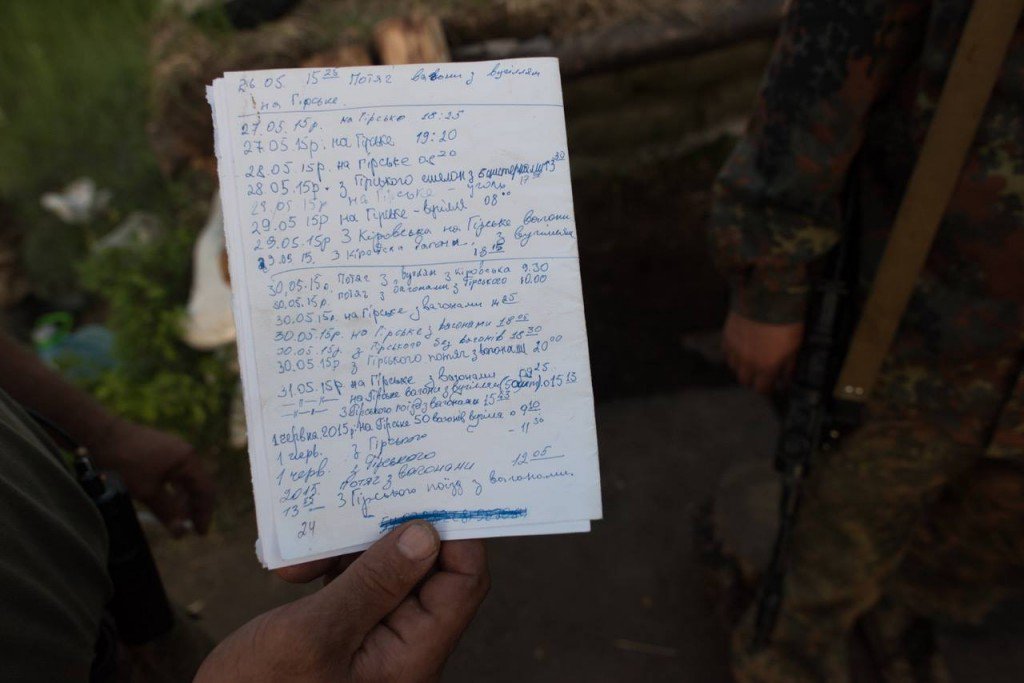 26 05. 15 25 Потяг вагони з вугіллям
на Гірське.
27.05.15р. на Гірське 18:25
27.05 15р. на Гірське 19:20
28.05.15р. на Гірське 08 20
28 05.15р. з Гірського з
29.05 15р на Гірське - уголь
29.05 15р на Гірське - вугілля 08 00
29.05.15р З Кіровська на Гірське вагони
29.05 15. З Кіровська вагони з вугіллям 18 15
30.05.15р. Потяг з вугіллям з Кіровська 9.30
30.05.15р. потяг з вагонами з Гірського 10.00
30.05 15р. на Гірське з вагонами
30.05.15р. на Гірське з вагонами 18
30.05.15р. з Гірського без вагонів 18 30
30.05 15р З Гірського потяг з вагонами 20 00
31.05.15р на Гірське з вагонами 09 25
—"—"— на Гірське вагони з вугіллям (50шт) о 15 13
—"—"— З Гірського поїзд з вагонами 15 45
1 червня 2015р. на Гірське 50 вагонів вугілля о 9 10
1 черв. з Гірського - 11 30
1 черв. з Гірського
2015 потяг з вагонами 12 05
13 55 З Гірського поїзд з вагонами.
24